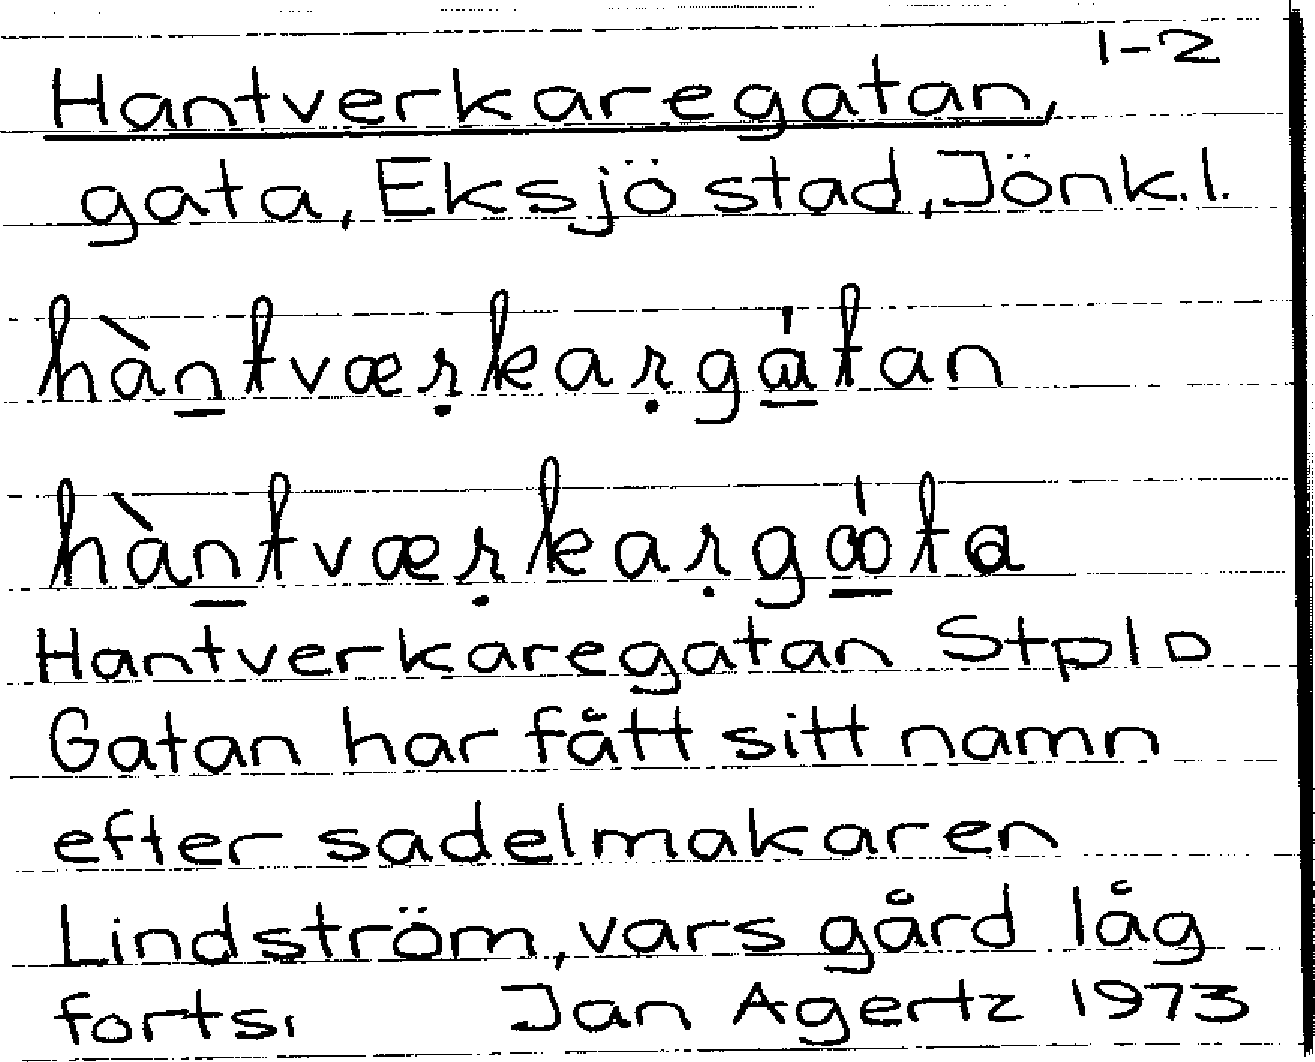 1-2
Hantverkaregatan,
gata, Eksjö stad, Jönk.l.
hàn̲tvæṛkaṛgá̲tan
hàn̲tvæṛkaṛgǻ̲ta
Hantverkaregatan Stpl D
Gatan har fått sitt namn
efter sadelmakaren
Lindström, vars gård låg
forts. Jan Agertz 1973